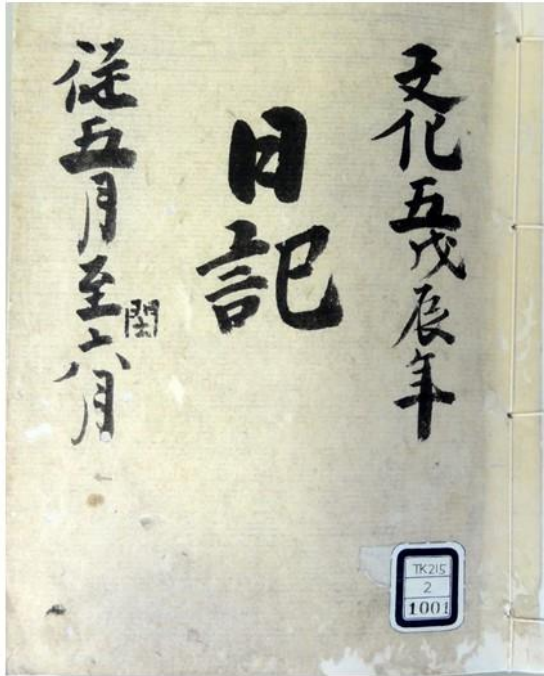 文化五戊辰年
日記
従五月至閏六月
TK215
2
1001